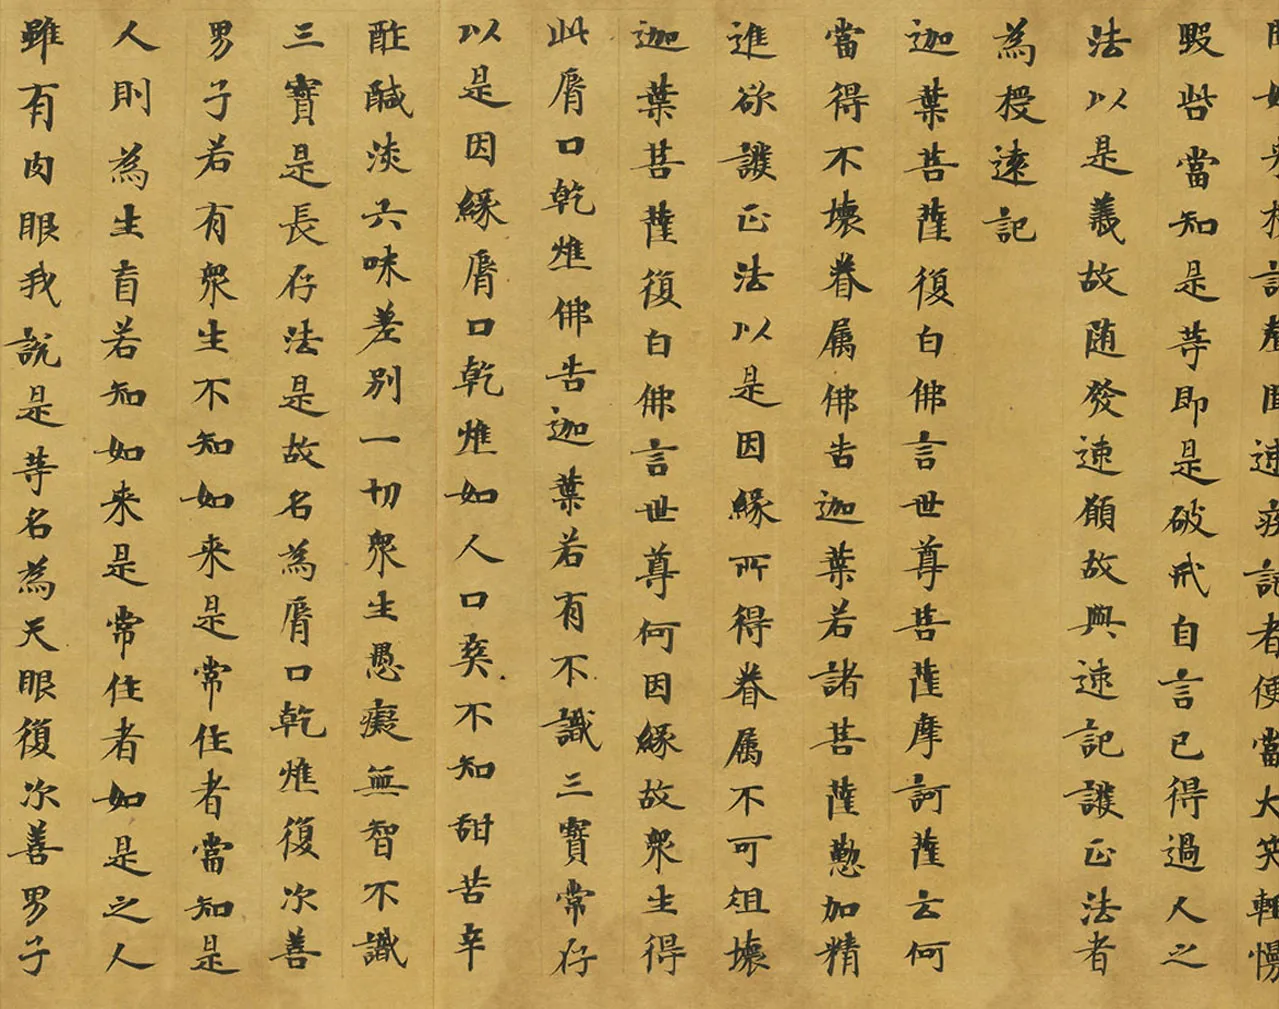 速疾記者便當大笑輕慢
毀呰當知是等即是破戒自言已得過人之
法以是義故随發速願故與速記護正法者
為授遠記
迦葉菩薩復白佛言世尊菩薩摩訶薩云何
當得不壞眷属佛告迦葉若諸菩薩懃加精
進欲護正法以是因緣所得眷属不可俎壞
迦葉菩薩復白佛言世尊何因緣故衆生得
此脣口乾燋佛告迦葉若有不識三寶常存
以是因緣脣口乾燋如人口爽不知甜苦辛
酢鹹淡六味差別一切衆生愚癡無智不識
三寶是長存法是故名為脣口乾燋復次善
男子若有衆生不知如来是常住者當知是
人則為生盲若知如来是常住者如是之人
雖有肉眼我說是等名為天眼復次善男子